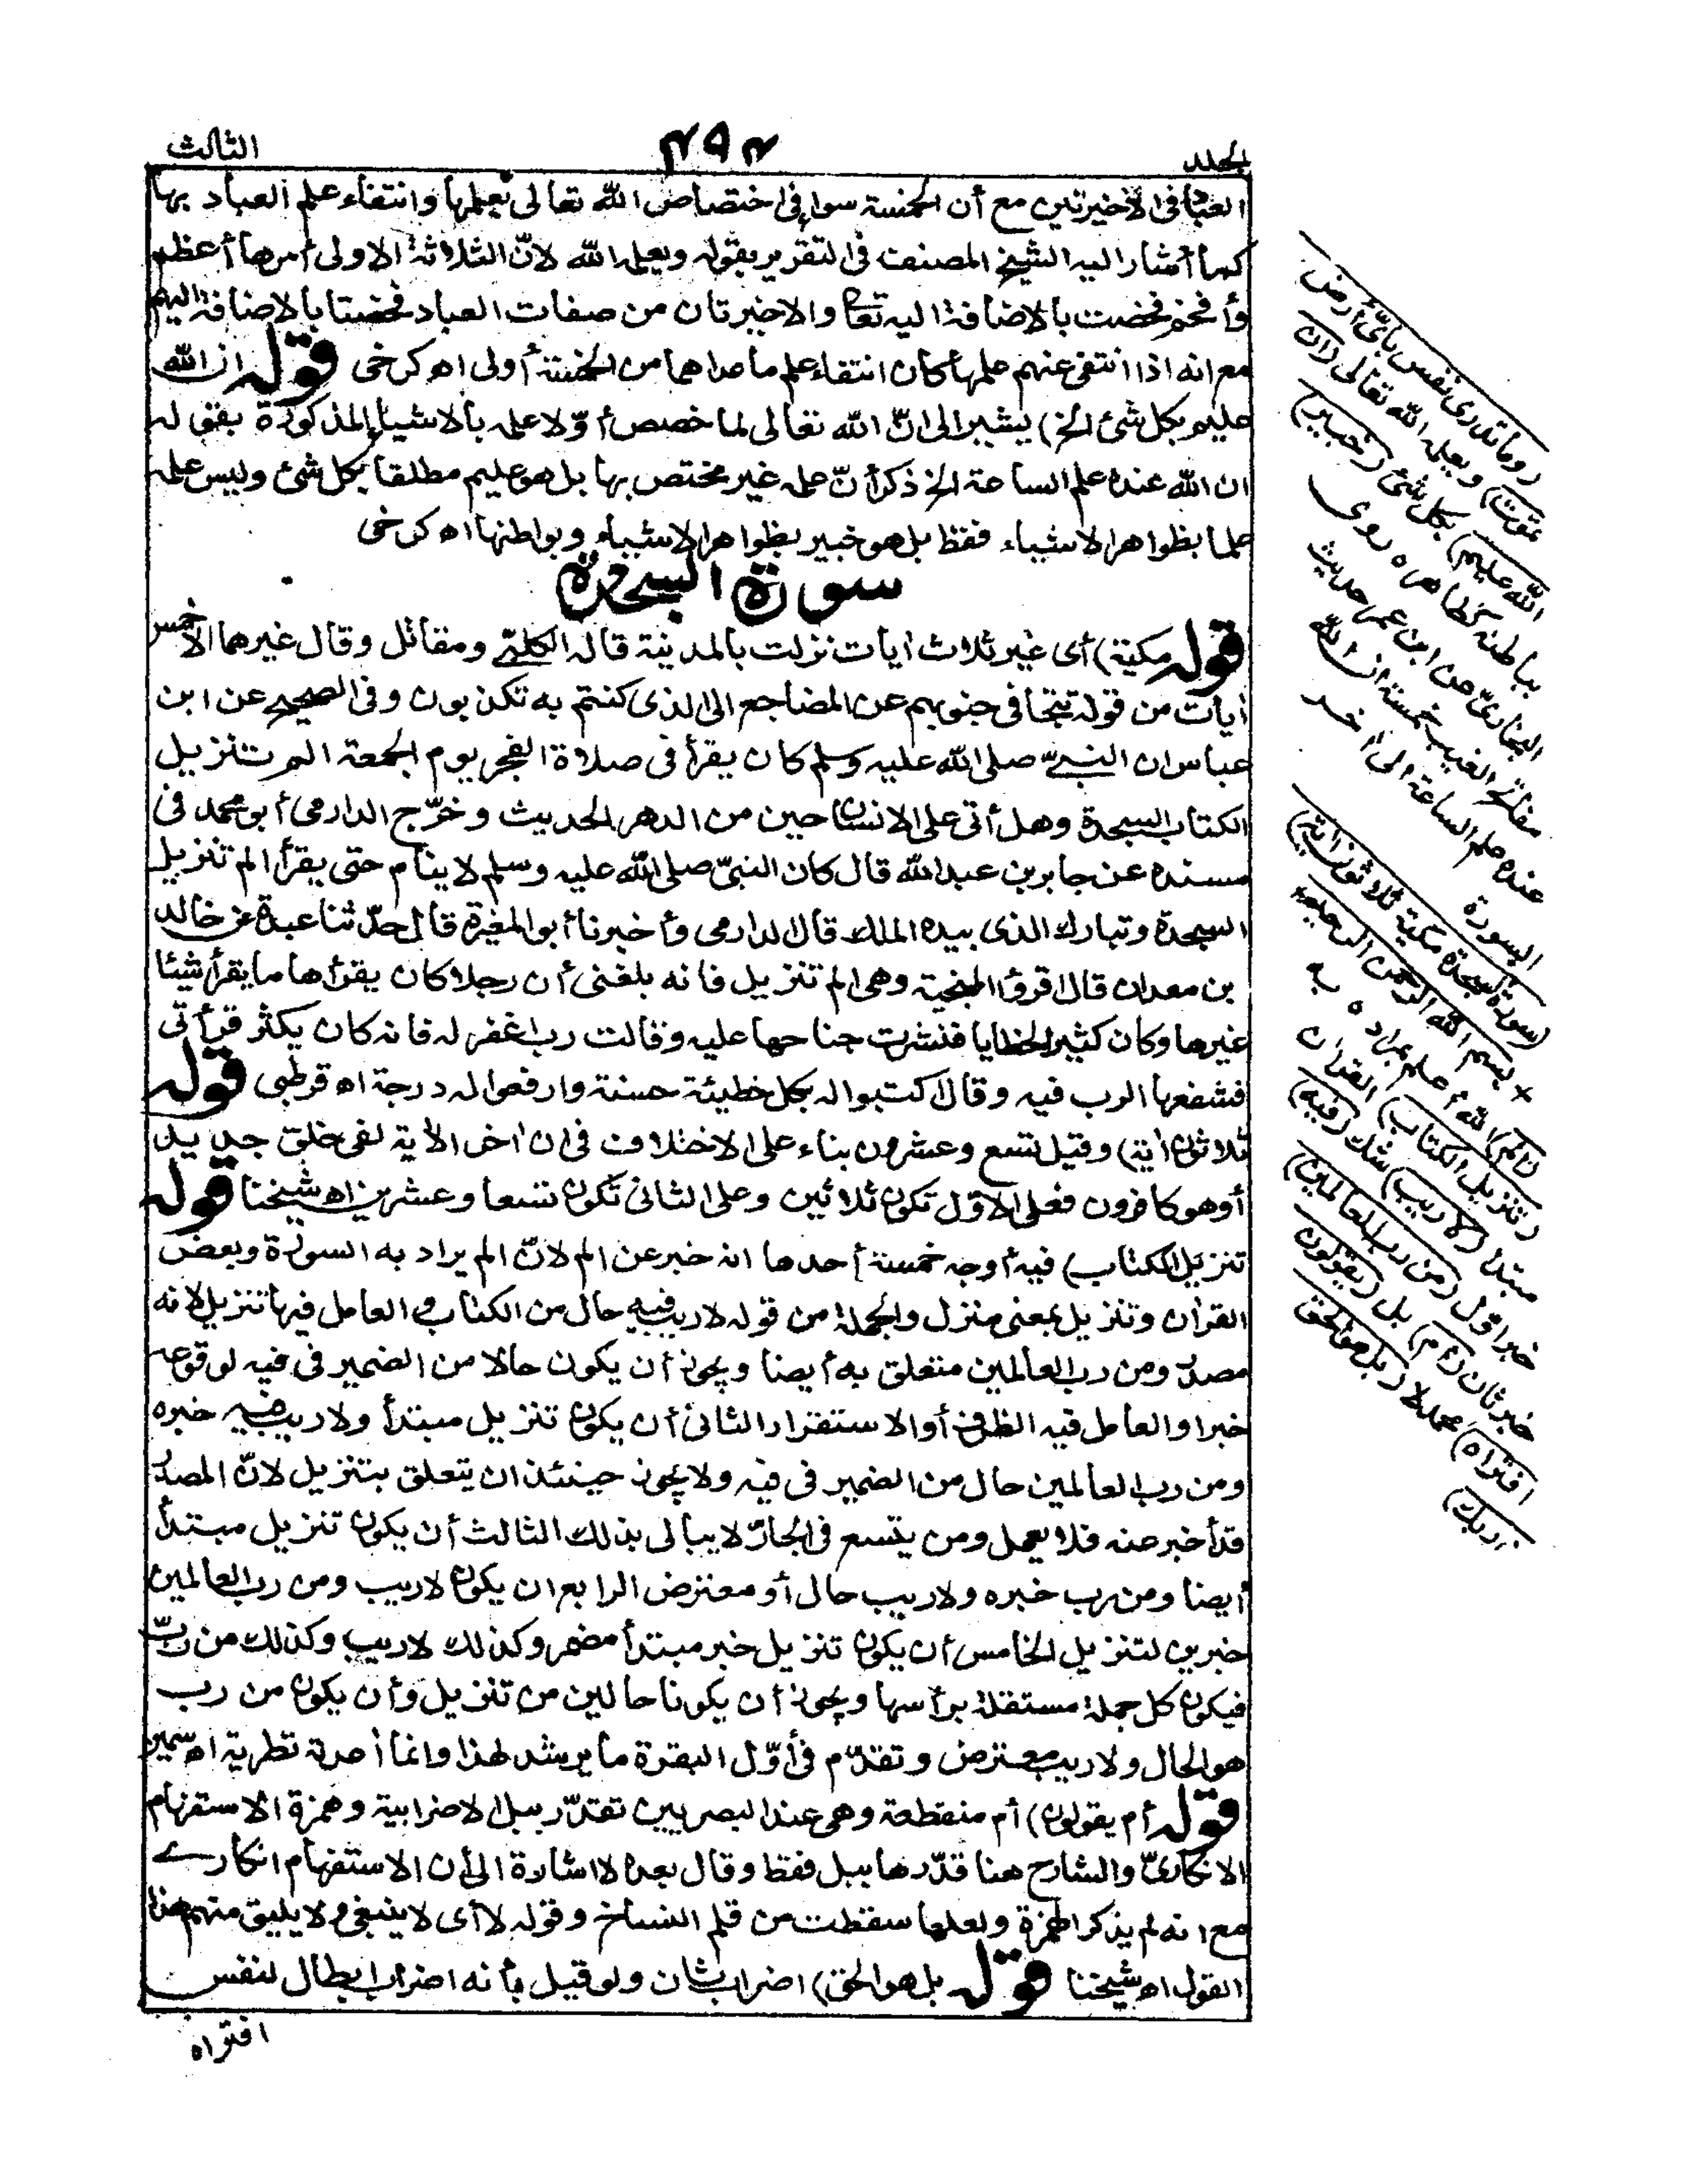 الجلد
٤٩٤
الثالث
العباد في الاخيرتين مع أن الخمسة سواء في اختصاص الله تعالى بعلمها وانتفاء علم العباد بها
كما أشار اليه الشيخ المصنف في التقرير بقوله ويعلمه الله لانّ الثلاثة الاولى أمرها أعظم
وأفخم فخصت بالاضافة اليه تعالى والاخيرتان من صفات العباد فخصتا بالاضافة اليهم
مع انه اذا انتفى عنهم علمها كان انتفاء علم ما عداهما من الخمسة أولى اه كرخى قوله ان الله
عليم بكل شئ الخ) يشير الى انّ الله تعالى لما خصص أوّلا علمه بالاشياء المذكورة بقوله
ان الله عنده علم الساعة الخ ذكر أنّ علمه غير مختص بها بل هو عليم مطلقا بكل شئ وليس علمه
علما بظواهر الاشياء فقط بل هو خبير بظواهر الاشياء وبواطنها اه كرخى
سورة السجدة
قوله مكية) أى غير ثلاث ايات نزلت بالمدينة قاله الكلبيّ ومقاتل وقال غيرهما الا خمس
ايات من قوله تتجافى جنوبهم عن المضاجع الى الذى كنتم به تكذبون وفى الصحيح عن ابن
عباس ان النبيّ صلى الله عليه وسلم كان يقرأ فى صلاة الفجر يوم الجمعة الم تنزيل
الكتاب السجدة وهل أتى على الانسان حين من الدهر الحديث وخرّج الدارمى أبو محمد فى
مسنده عن جابر بن عبد الله قال كان النبيّ صلى الله عليه وسلم لا ينام حتى يقرأ الم تنزيل
السجدة وتبارك الذى بيده الملك قال الدارمى وأخبرنا أبو المغيرة قال حدّثنا عبدة عن خالد
بن معدان قال اقرؤا المنجية وهى الم تنزيل فانه بلغنى أن رجلا كان يقرأها ما يقرأ شيئا
غيرها وكان كثير الخطايا فنشرت جناحها عليه وقالت رب اغفر له فانه كان يكثر قرأتى
فشفعها الرب فيه وقال اكتبوا له بكل خطيئة حسنة وارفعوا له درجة اه قرطبى قوله
ثلاثون اية) وقيل تسع وعشرون بناء على الاختلاف فى ان اخر الاية لفى خلق جديد
أو هو كافرون فعلى الاوّل تكون ثلاثين وعلى الثانى تكون تسعا وعشرين اه شيخنا قوله
تنزيل الكتاب) فيه أوجه خمسة أحدها انه خبر عن الم لانّ الم يراد به السورة وبعض
القران وتنزيل بمعنى منزل والجملة من قوله لا ريب فيه حال من الكتاب والعامل فيها تنزيل لانه
مصدر ومن رب العالمين متعلق به أيضا ويجوز أن يكون حالا من الضمير فى فيه لوقوعه
خبرا والعامل فيه الظرف أو الاستقرار الثانى أن يكون تنزيل مبتدأ ولا ريب فيه خبره
ومن رب العالمين حال من الضمير فى فيه ولا يجوز حينئذ ان يتعلق بتنزيل لانّ المصدر
قد أخبر عنه فلا يعمل ومن يتسع فى الجارّ لا يبالى بذلك الثالث أن يكون تنزيل مبتدأ
أيضا ومن رب خبره ولا ريب حال أو معترض الرابع ان يكون لا ريب ومن رب العالمين
خبرين لتنزيل الخامس أن يكون تنزيل خبر مبتدأ مضمر وكذلك لا ريب وكذلك من ربّ
فيكون كل جملة مستقلة برأسها ويجوز أن يكونا حالين من تنزيل وأن يكون من رب
هو الحال ولا ريب معترض وتقدّم فى أوّل البقرة ما يرشد لهذا وانما أعدته تطرية اه سمين
قوله أم يقولون) أم منقطعة وهى عند البصريين تقدّر ببل الاضرابية وهمزة الاستفهام
الانكارىّ والشارح هنا قدّرها ببل فقط وقال بعده لا اشارة الى أن الاستفهام انكارى
مع انه لم يذكر الهمزة ولعلها سقطت من قلم النساخ وقوله لا أى لا ينبغى ولا يليق منهم هذا
القول اه شيخنا قوله بل هو الحق) اضراب ثان ولو قيل بأنه اضراب ابطال لنفس
افتراه
(وما تدرى نفس بأىّ أرض
تموت) ويعلمه الله تعالى (ان
الله عليم) بكل شئ (خبير)
بباطنه كظاهره روى
البخارىّ عن ابن عمر حديث
مفاتح الغيب خمسة ان الله
عنده علم الساعة الى اخر
السورة
(سورة السجدة مكية ثلاثون اية)
بسم الله الرحمن الرحيم
(الم) الله أعلم بمراده به
(تنزيل الكتاب) القران
مبتدا (لا ريب) شك (فيه)
خبر اول (من رب العالمين)
خبر ثان (أم) بل (يقولون
افتراه) محمد لا (بل هو الحق
من ربك)